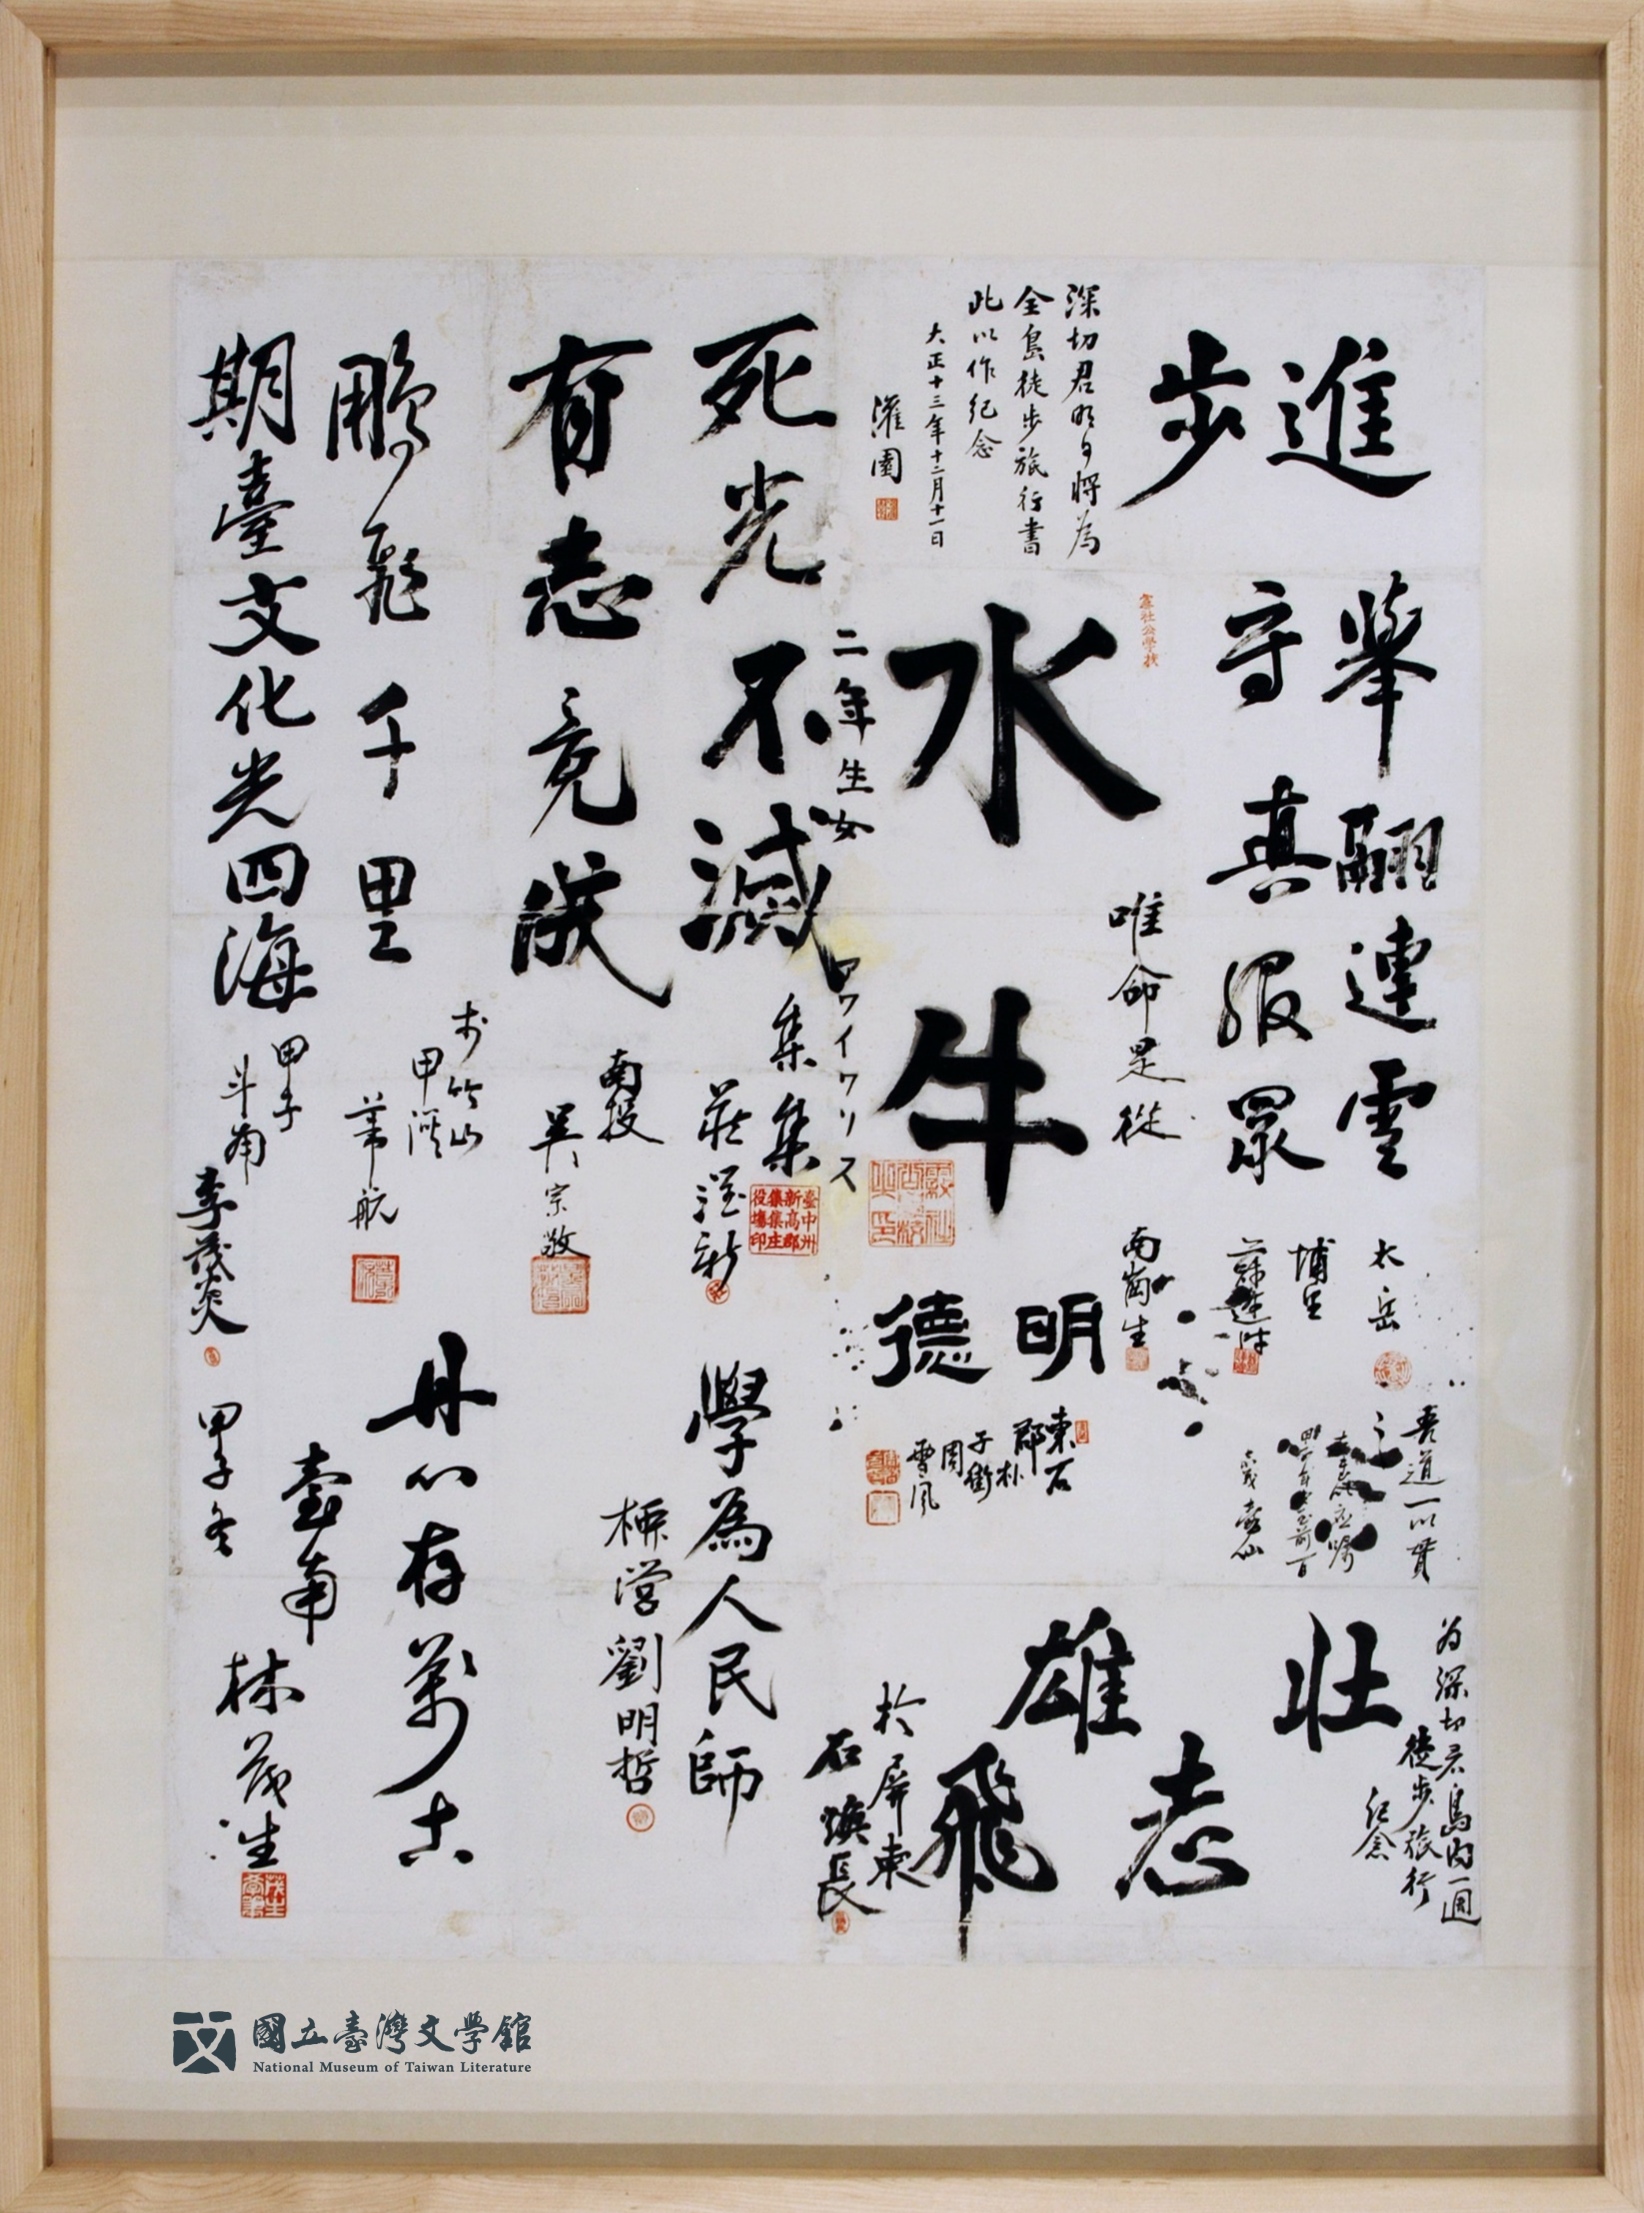 進
步
深切君明日將為
全島徒步旅行書
此以作紀念
大正十三年十二月十一日
灌園
舉翮連雲
太岳
守真服眾
埔里
唯命是從
南崗生
霧社公學校
水牛
二年生女
ワイワリス
明德
東石
郡朴
子街
周
雪風
吾道一以貫
之
為深切君島內一週
徒步旅行
紀念
壯
志
雄
飛
於屏東
石煥長
死光不滅
集集
莊
臺中州
新高郡
集集庄
役場印
有志竟成
南投
吳宗敬
學為人民師
柳營劉明哲
鵬飛千里
於竹山
甲溪
葦航
丹心存萬古
臺南
林茂生
期臺文化光四海
甲子
斗南
李茂炎
甲子冬
國立臺灣文學館
National Museum of Taiwan Literature